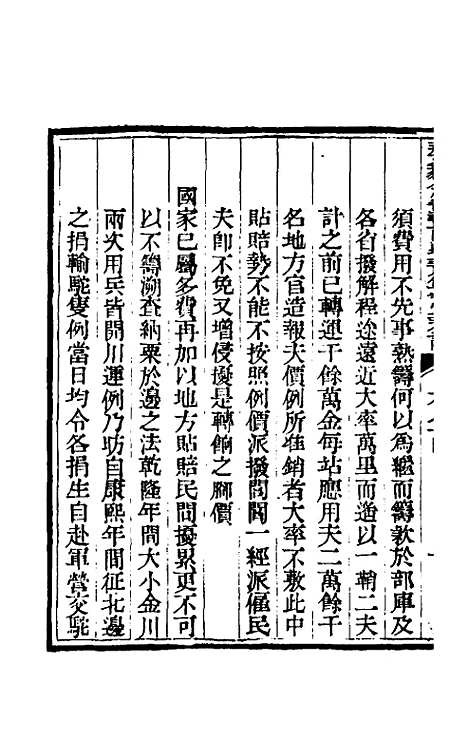 須費用不先事熟籌何以為繼而籌款於部庫及
各省撥解程途遠近大率萬里而遙以一鞘二夫
計之前已轉運千餘萬金每站應用夫二萬餘千
名地方官造報夫價例所准銷者大率不敷此中
貼賠勢不能不按照例價派撥閭閻一經派僱民
夫卽不免又增侵擾是轉餉之腳價
國家已屬多費再加以地方貼賠民間擾累更不可
以不籌溯查納粟於邊之法乾隆年間大小金川
兩次用兵皆開川運例乃昉自康熙年間征北邊
之捐輸駝隻例當日均令各捐生自赴軍營交駝